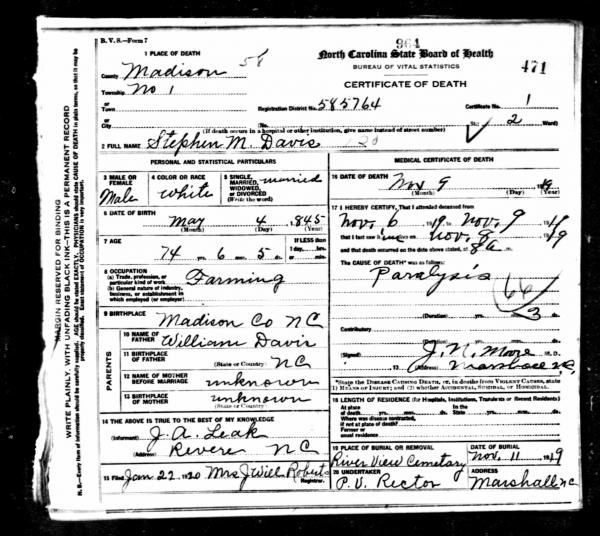 B. V. S.—Form 7
1 PLACE OF DEATH
58
364
North Carolina State Board of Health
BUREAU OF VITAL STATISTICS
471
CERTIFICATE OF DEATH
County Madison
Township No 1
or
Town
Registration District No. 585764
Certificate No. 1
or
City
(No.
St.; 2 Ward)
(If death occurs in a hospital or other institution, give name instead of street number)
2 FULL NAME Stephen M. Davis
PERSONAL AND STATISTICAL PARTICULARS
3 MALE OR FEMALE
Male
4 COLOR OR RACE
White
5 SINGLE, MARRIED, WIDOWED, OR DIVORCED
(Write the word)
married
6 DATE OF BIRTH
May 4, 1845
(Month) (Day) (Year)
7 AGE
74 yrs. 6 mos. 5 ds.
If LESS than
1 day, hrs.
or min.
8 OCCUPATION
(a) Trade, profession, or
particular kind of work
Farming
(b) General nature of industry,
business, or establishment in
which employed (or employer)
9 BIRTHPLACE
Madison Co NC
PARENTS
10 NAME OF FATHER William Davis
11 BIRTHPLACE OF FATHER
(State or Country) NC
12 NAME OF MOTHER BEFORE MARRIAGE unknown
13 BIRTHPLACE OF MOTHER unknown
(State or Country)
14 THE ABOVE IS TRUE TO THE BEST OF MY KNOWLEDGE
(Informant) J. A. Leak
(Address) Revere NC
15 Filed Jan 22 1920 Mrs J Will Roberts
Registrar.
MEDICAL CERTIFICATE OF DEATH
16 DATE OF DEATH
Nov 9 1919
(Month) (Day) (Year)
17 I HEREBY CERTIFY, That I attended deceased from
Nov. 6 1919 to Nov. 9 1919
that I last saw him alive on Nov. 8 1919
and that death occurred on the date above stated, at 8 a m.
The CAUSE OF DEATH* was as follows:
Paralysis
66
(Duration) yrs. mos. 3 ds.
Contributory
(Duration) yrs. mos. ds.
(Signed) J. N. Moore M. D.
(Address) Marshall NC
*State the DISEASE CAUSING DEATH, or, in deaths from VIOLENT CAUSES, state
1) MEANS OF INJURY; and (2) whether ACCIDENTAL, SUICIDAL, OR HOMICIDAL.
18 LENGTH OF RESIDENCE (for Hospitals, Institutions, Transients or Recent Residents)
At place of death yrs. mos. ds. In the State yrs. mos. ds.
Where was disease contracted,
if not at place of death?
Former or
usual residence
19 PLACE OF BURIAL OR REMOVAL
River View Cemetary
DATE OF BURIAL
Nov. 11 1919
20 UNDERTAKER
P. V. Rector
ADDRESS
Marshall NC
MARGIN RESERVED FOR BINDING
WRITE PLAINLY, WITH UNFADING BLACK INK—THIS IS A PERMANENT RECORD
N. B.—Every item of information should be carefully supplied. AGE should be stated EXACTLY. PHYSICIANS should state CAUSE OF DEATH in plain terms, so that it may be
properly classified. Exact statement of OCCUPATION is very important.